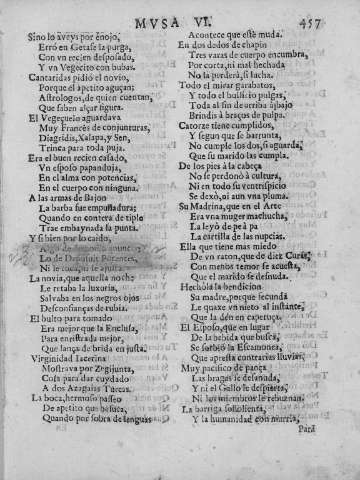 MVSA VI.
457
Sino lo aveys por enojo,
Erró en Getafe la purga,
Con vn recien desposado,
Y vn Vegecito con bubas.
Cantaridas pidió el novio,
Porque el apetito aguçan;
Astrologos, de quien cuentan,
Que saben alçar figura.
El Vegeçuelo aguardava
Muy Francés de conjunturas,
Diagridis, Xalapa, y Sen,
Trinca para toda puja.
Era el buen recien casado,
Vn esposo papanduja,
En el alma con potencias,
En el cuerpo con ninguna.
A las armas de Bajon
La barba fue empuñadura;
Quando en contera de tiple
Trae embaynada la punta.
Y si bien por lo caido,
Lo de Deposuit Potentes,
La novia, que aquella noche
Le retaba la luxuria,
Salvaba en los negros ojos
Desconfianças de rubia.
El bulto para tomado
Era mejor que la Enclusa,
Para enristrada mejor,
Que lança de brida en justa.
Virginidad
Mostrava por
Cosa para dar cuydado
A dos Azagaias Turcas.
La boca, hermoso passeo
De apetito que besuca,
Quando por sobra de lenguas
Acontece que esté muda.
En dos dados de chapin
Tres varas de cuerpo encumbra,
Por corta, ni mal hechada
No la perderá, si lucha.
Todo el mirar garabatos,
Y todo el bullicio pulgas,
Toda al fin de arriba abajo
Brindis à braços de pulpa.
Catorze tiene cumplidos,
Y segun que se barrunta,
No cumple los dos, si aguarda,
Que su marido las cumpla.
De los pies à la cabeça
No se perdonò à cultura,
Ni en todo su ventrispicio
Se dexò, ni aun vna pluma.
Su Madrina, que en el Arte
Era vna muger machucha,
La leyò de pe à pa
La cartilla de las nupcias.
Ella que tiene mas miedo
De vn raton, que de diez Curas,
Con menos temor se acuesta,
Que el marido se desnuda.
Hechòla la bendicion
Su madre, porque fecunda
Le quaxe vn nieto al instante,
Que la dèn en caperuça.
El Esposo, que en lugar
De la bebida que busca,
Se sorbiò la Escamonea,
Que apresta contrarias lluvias,
Muy pacifico de pança
Las bragas se desanuda,
Y ni el Gallo le despierta,
Ni los miembros le rebuznan.
La barriga soñolienta,
Y la humanidad con murria,
Para